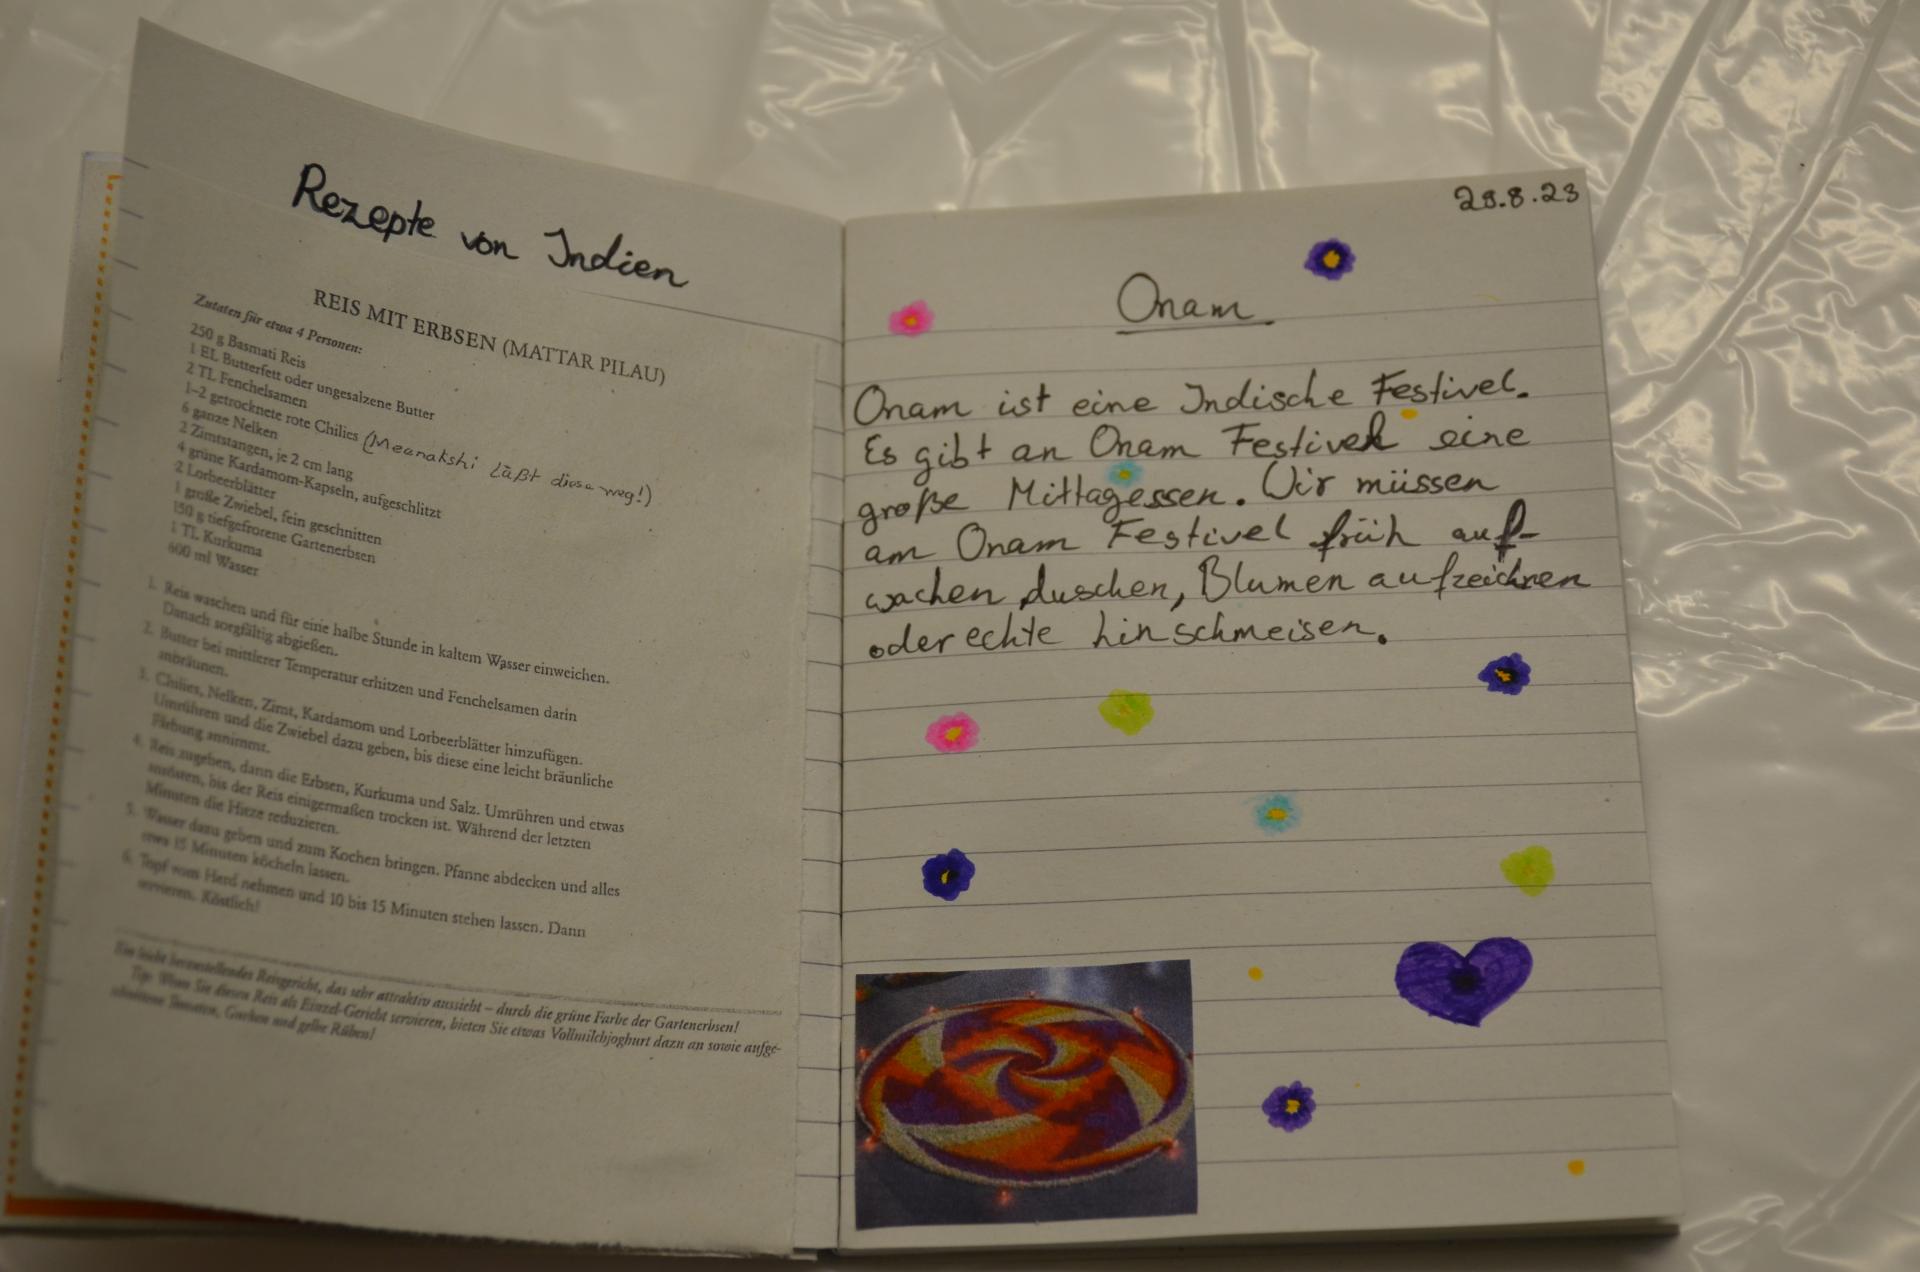 Rezepte von Indien
REIS MIT ERBSEN (MATTAR PILAU)
Zutaten für etwa 4 Personen:
250 g Basmati Reis
1 EL Butterfett oder ungesalzene Butter
2 TL Fenchelsamen
1–2 getrocknete rote Chilies (Meenakshi läßt diese weg!)
6 ganze Nelken
2 Zimtstangen, je 2 cm lang
4 grüne Kardamom-Kapseln, aufgeschlitzt
2 Lorbeerblätter
1 große Zwiebel, fein geschnitten
150 g tiefgefrorene Gartenerbsen
1 TL Kurkuma
600 ml Wasser
1. Reis waschen und für eine halbe Stunde in kaltem Wasser einweichen.
Danach sorgfältig abgießen.
2. Butter bei mittlerer Temperatur erhitzen und Fenchelsamen darin
anbräunen.
3. Chilies, Nelken, Zimt, Kardamom und Lorbeerblätter hinzufügen.
Umrühren und die Zwiebel dazu geben, bis diese eine leicht bräunliche
Färbung annimmt.
4. Reis zugeben, dann die Erbsen, Kurkuma und Salz. Umrühren und etwas
anrösten, bis der Reis einigermaßen trocken ist. Während der letzten
Minuten die Hitze reduzieren.
5. Wasser dazu geben und zum Kochen bringen. Pfanne abdecken und alles
etwa 15 Minuten köcheln lassen.
6. Topf vom Herd nehmen und 10 bis 15 Minuten stehen lassen. Dann
servieren. Köstlich!
Ein leicht herzustellendes Reisgericht, das sehr attraktiv aussieht – durch die grüne Farbe der Gartenerbsen!
Tip: Wenn Sie diesen Reis als Einzel-Gericht servieren, bieten Sie etwas Vollmilchjoghurt dazu an sowie aufge-
schnittene Tomaten, Gurken und gelbe Rüben!
29.8.23
Onam
Onam ist eine Indische Festivel.
Es gibt an Onam Festivel eine
große Mittagessen. Wir müssen
am Onam Festivel früh auf-
wachen, duschen, Blumen aufzeichnen
oder echte hinschmeisen.